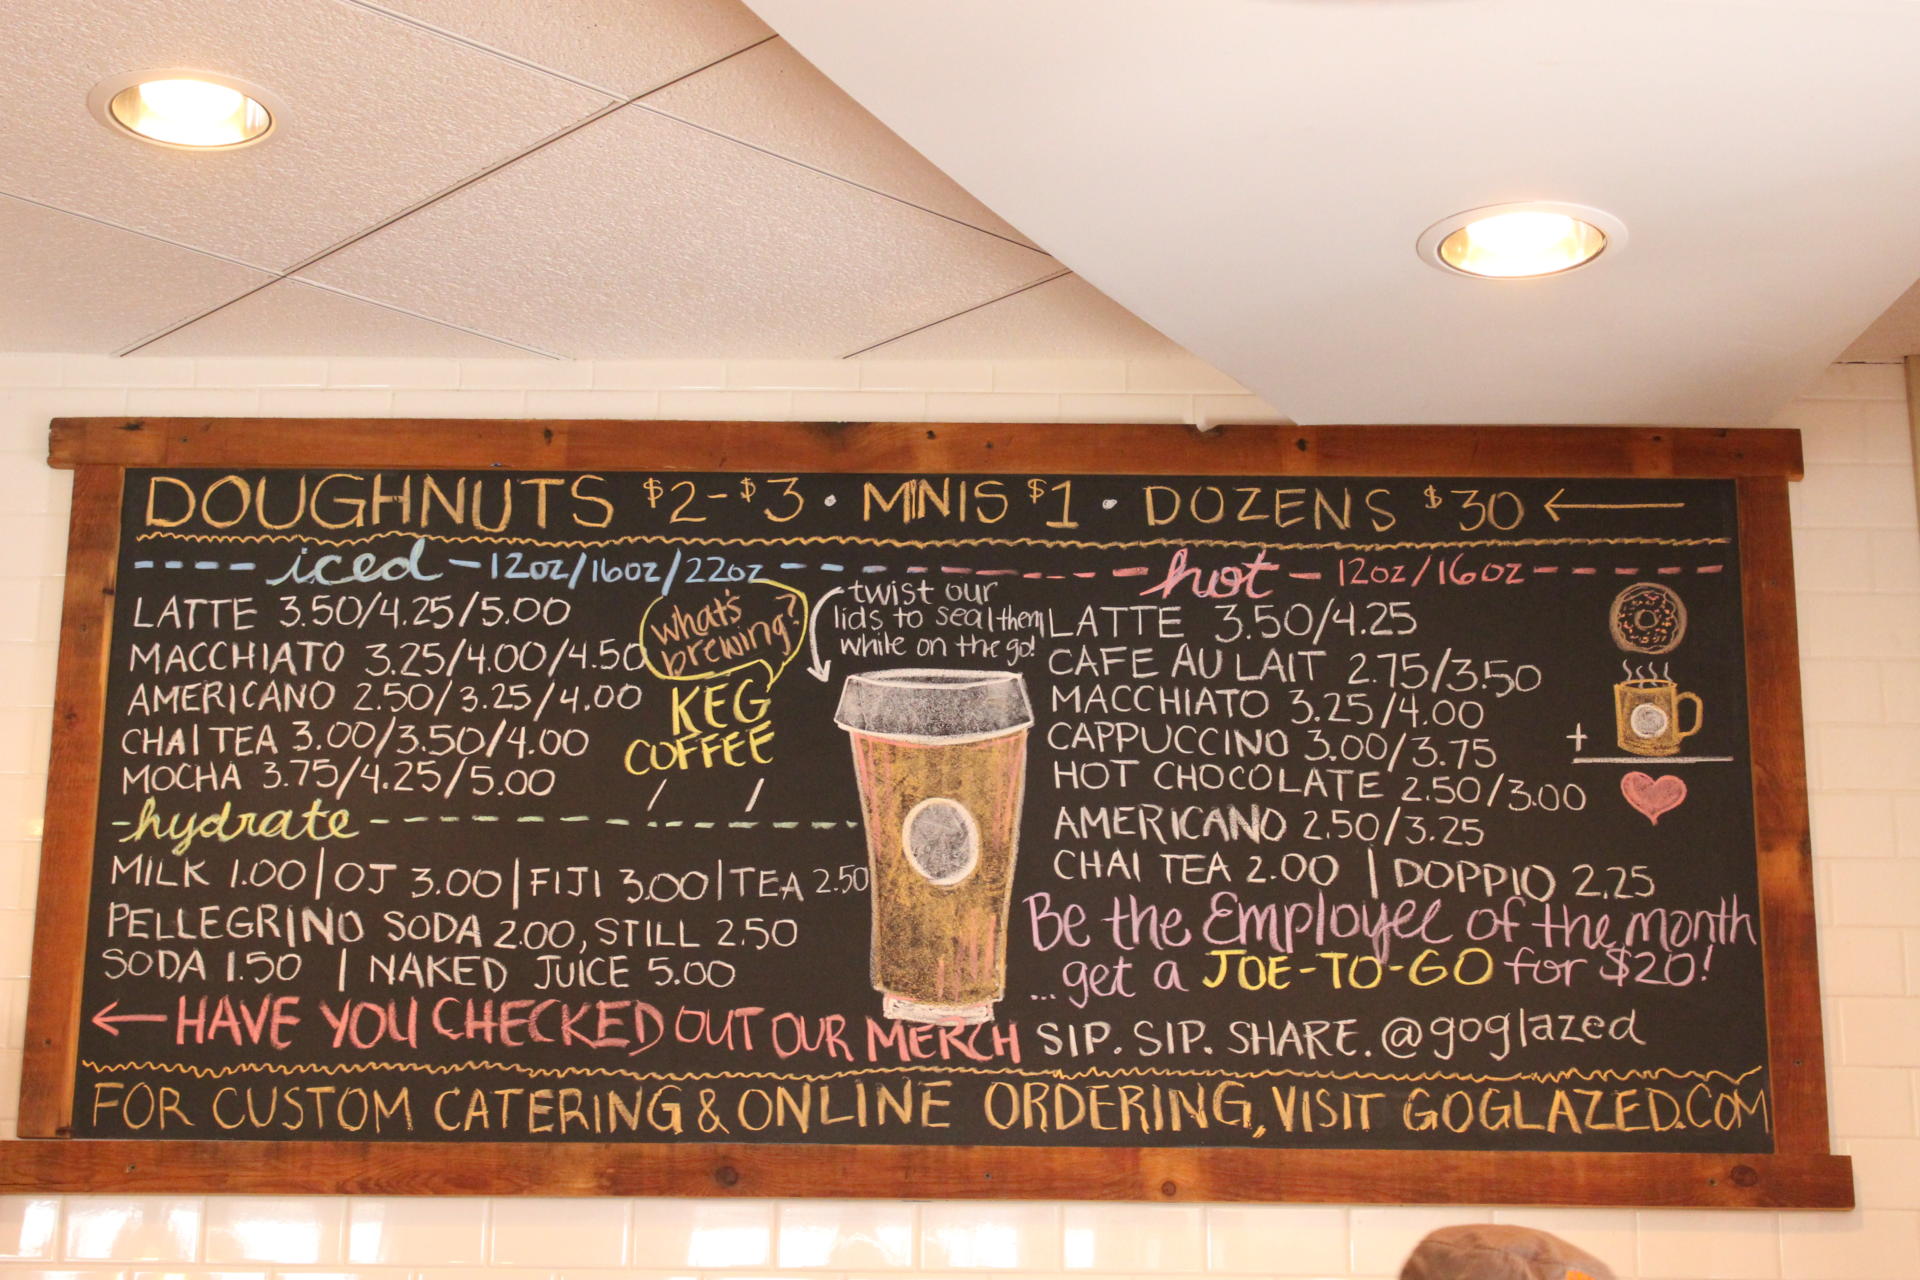 DOUGHNUTS $2-$3 · MINIS $1 · DOZENS $30
iced - 12oz/16oz/22oz
LATTE 3.50/4.25/5.00
MACCHIATO 3.25/4.00/4.50
AMERICANO 2.50/3.25/4.00
CHAI TEA 3.00/3.50/4.00
MOCHA 3.75/4.25/5.00
what's
brewing?
KEG
COFFEE
twist our
lids to seal them
while on the go!
hydrate
MILK 1.00 | OJ 3.00 | FIJI 3.00 | TEA 2.50
PELLEGRINO SODA 2.00, STILL 2.50
SODA 1.50 | NAKED JUICE 5.00
HAVE YOU CHECKED OUT OUR MERCH
hot - 12oz/16oz
LATTE 3.50/4.25
CAFE AU LAIT 2.75/3.50
MACCHIATO 3.25/4.00
CAPPUCCINO 3.00/3.75
HOT CHOCOLATE 2.50/3.00
AMERICANO 2.50/3.25
CHAI TEA 2.00 | DOPPIO 2.25
+
Be the Employee of the month
...get a JOE-TO-GO for $20!
SIP. SIP. SHARE. @goglazed
FOR CUSTOM CATERING & ONLINE ORDERING, VISIT GOGLAZED.COM